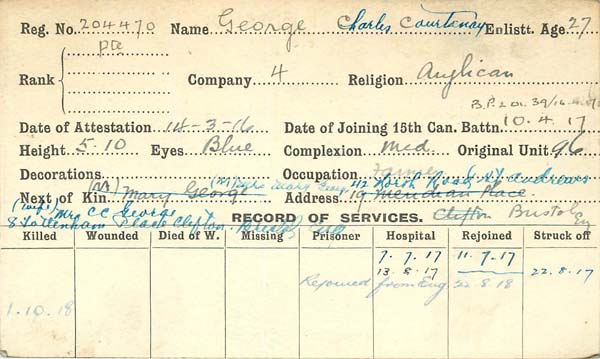 Reg. No. 204470 Name George Charles Courtenay Enlistt. Age 27
Pte
Rank Company 4 Religion Anglican
B.P.2 O1. 39/16.4.17
Date of Attestation 14-3-16 Date of Joining 15th Can. Battn. 10.4.17
Height 5.10 Eyes Blue Complexion Med. Original Unit 96
Decorations Occupation Farmer
(M) Mrs Mary George 112 North Road St Andrews
Next of Kin (M) Mary George Address 19 Meridian Place
(wife) Mrs C C George RECORD OF SERVICES. Clifton Bristol Eng
8 Tottenham Place Clifton Bristol Eng
Killed Wounded Died of W. Missing Prisoner Hospital Rejoined Struck off
7.7.17 11.7.17
13.8.17 22.8.17
Rejoined from Eng 22.8.18
1.10.18